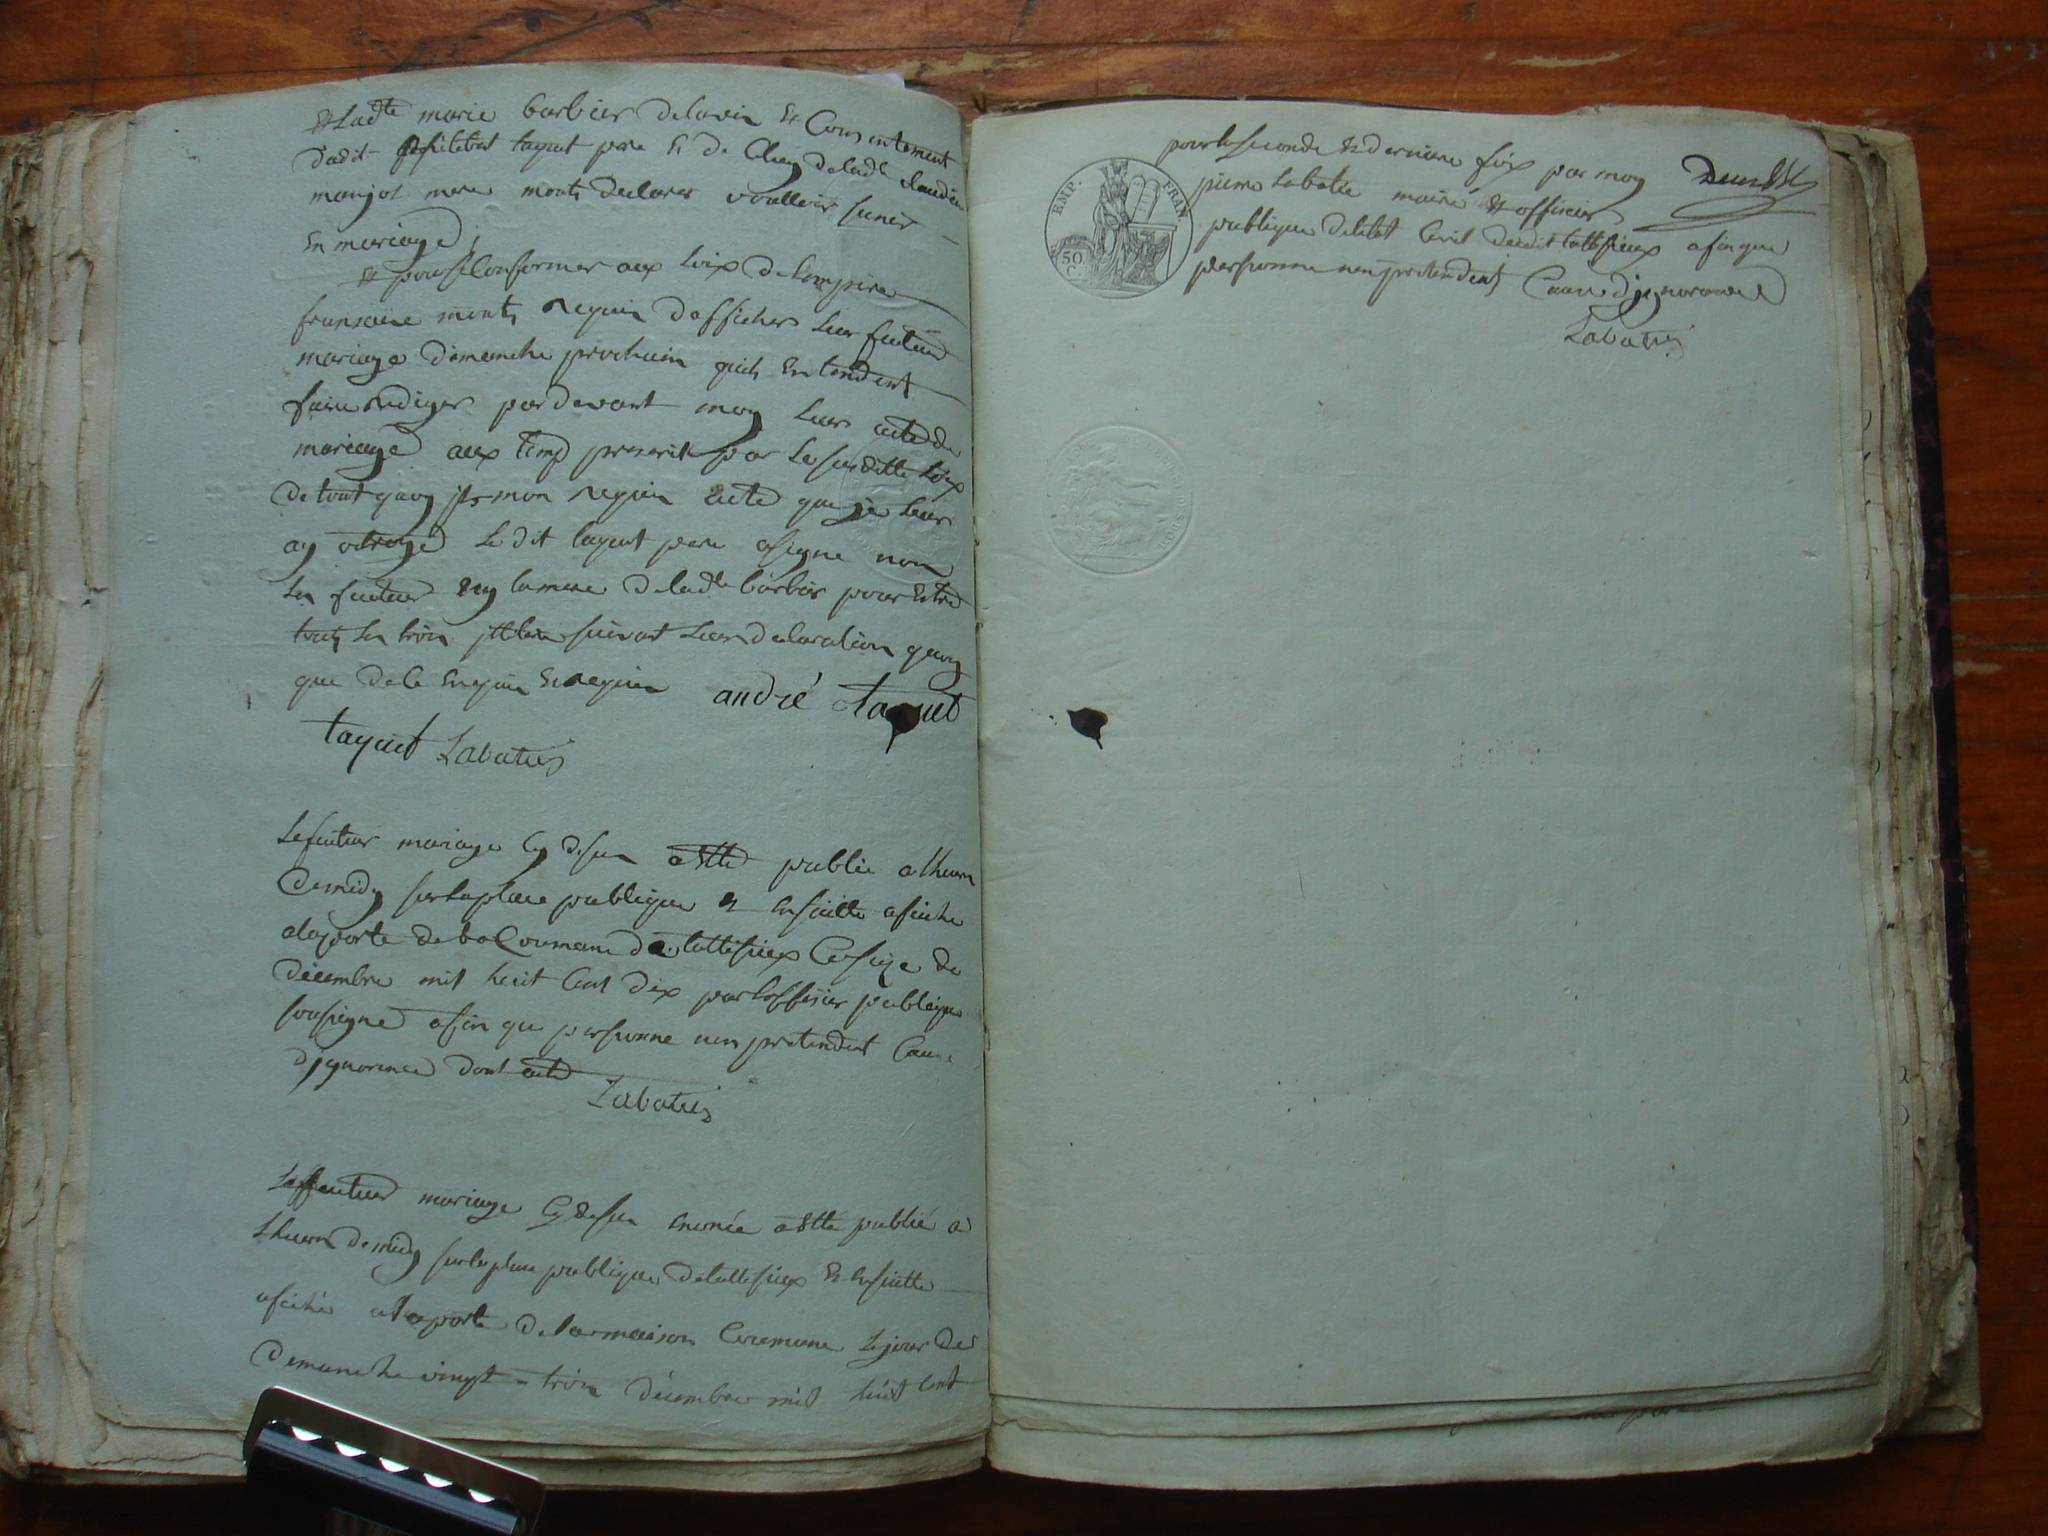 & Ladte marie barbier de lavis & Consentement
dudit taguet pere & de Cluny de ladte claudine
monjot mere mont declares voulloir sunir
En mariage
& pour se Conformer aux Loix de Lempire
fransaise monts requis dafficher leur futur
mariage dimanche prochain quils Entendent
faire rediger pardevant moy leur acte de
mariage aux temp prescrit par les susditte Loix
de tout quoy ils mon requis acte que je leur
ay octroyé le dit taguet pere asigne non
les futeur ny lamere de ladte barbier pour Estre
touts les trois suivant leur declaration quoy
que de le Enquis & requis andré taguet
taguet Labatie

Le futeur mariage Cy desu a Esté publié a lheure
de midy sur la place publique & Ensuitte afiche
alaporte de la Coumune de tallesieux Ce seize de
décembre mil huit Cent dix par lofficier publique
sousigné afin que personne nen pretendent Cause
dygnorence dont acte
Labatie

Le futeur mariage Cy desu enoncé a Esté publié a
Lheure de midy sur la place publique de tallesieux & Ensuitte
afiché a la porte de la maison Coumune le jour de
dimanche vingt-trois décembre mil huit Cent
pour la seconde & derniere fois par moy
pierre Labatie maire & officier
publique deletat Civil dudit tallesieux afin que
personne nen pretendent Cause dygnorance
Labatie
EMP. FRAN.
50.
C.